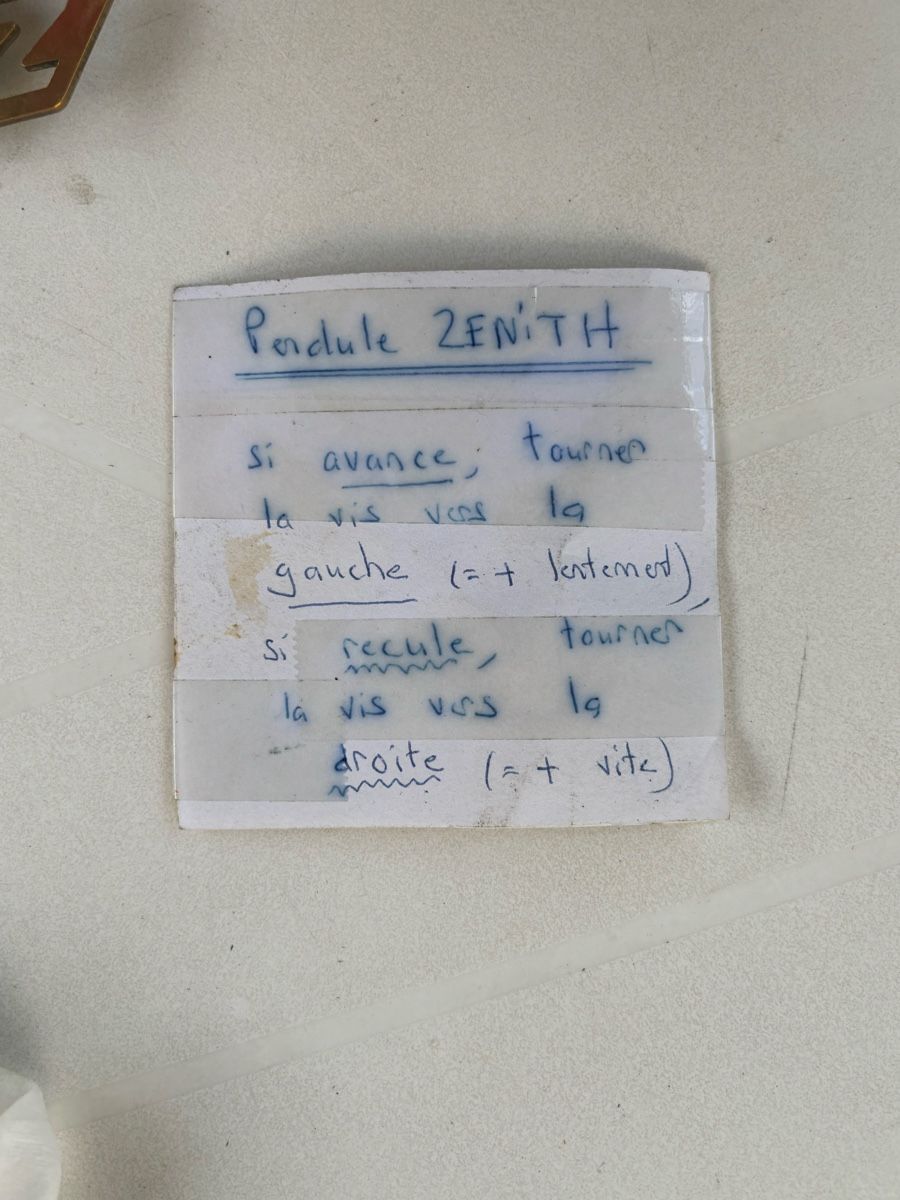 Pendule ZENiTH
si avance, tourner
la vis vers la
gauche (= + lentement),
si recule, tourner
la vis vers la
droite (= + vite)